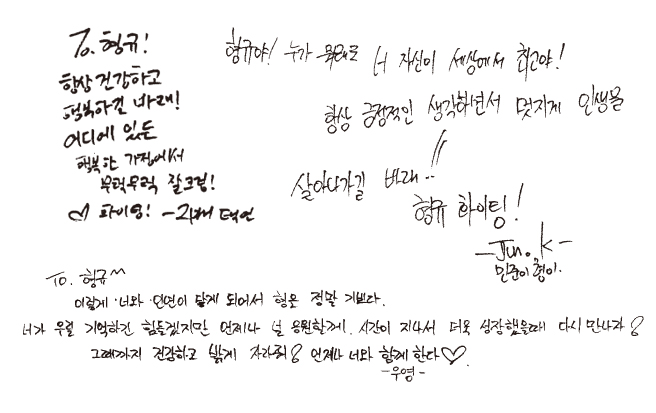 To. 형규!
항상 건강하고
행복하길 바래!
어디에 있든
행복한 가정에서
무럭무럭 잘크렴!
♡ 파이팅! - 택연
형규야! 누가 뭐래도 너 자신이 세상에서 최고야!
항상 긍정적인 생각하면서 멋지게 인생을
살아나가길 바래..!!
형규 화이팅!
-Jun. K-
민준이 형이.
To. 형규^^
이렇게 너와 인연이 닿게 되어서 형은 정말 기쁘다.
너가 우릴 기억하긴 힘들겠지만 언제나 널 응원할게. 시간이 지나서 더욱 성장했을때 다시 만나자?
그때까지 건강하고 밝게 자라줘? 언제나 너와 함께 한다♡.
-우영-